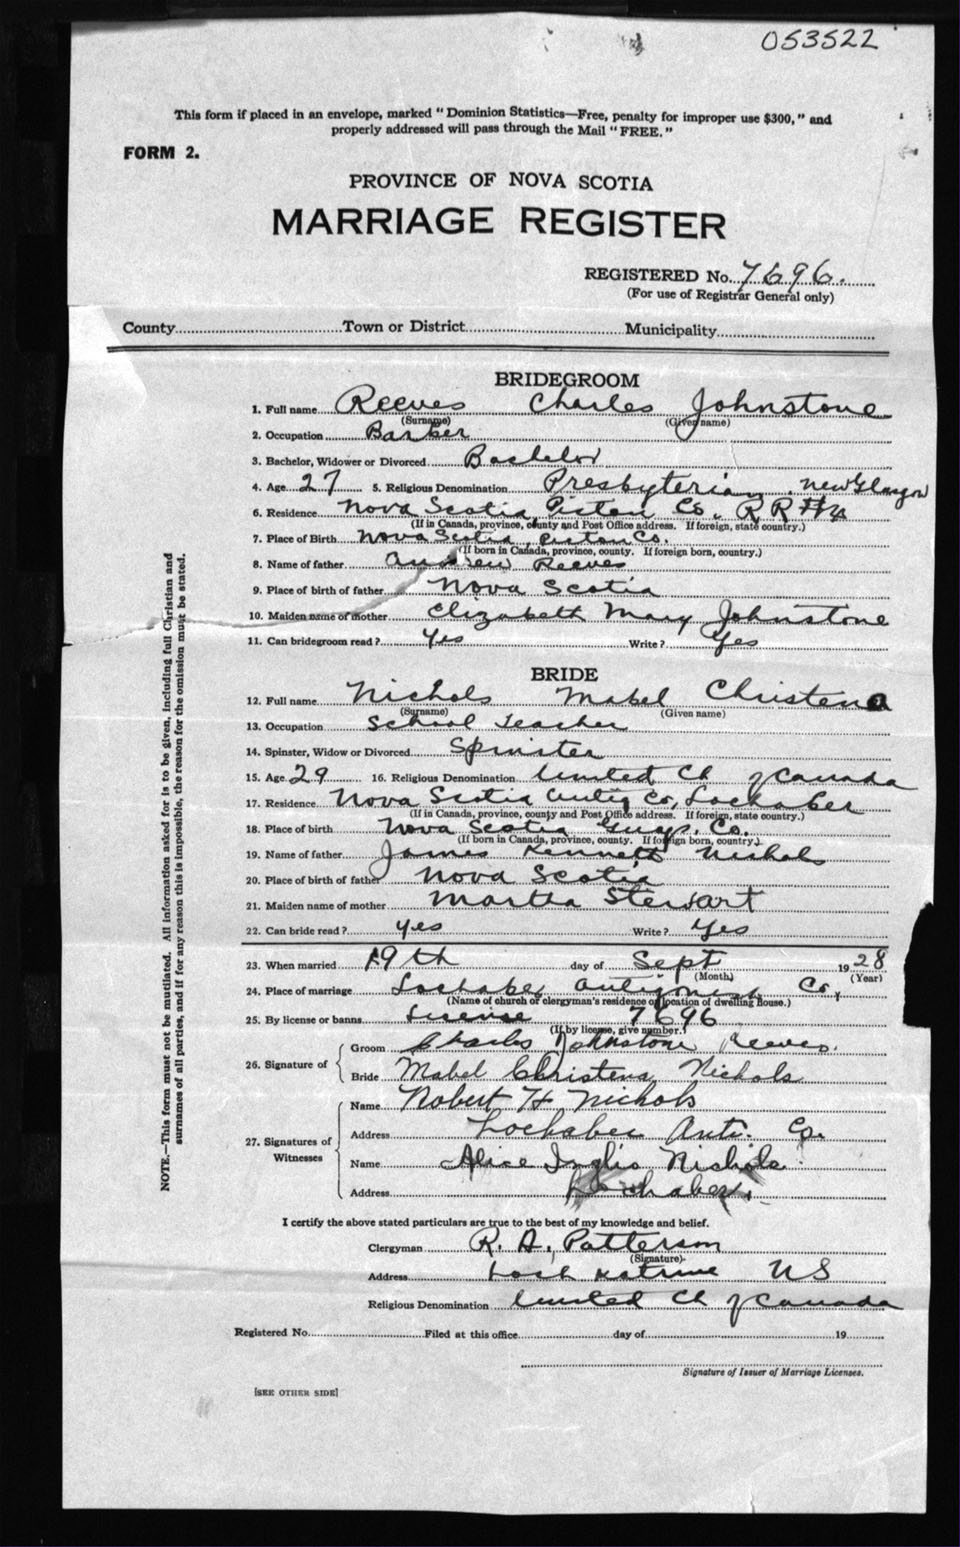 053522
This form if placed in an envelope, marked "Dominion Statistics—Free, penalty for improper use $300," and
properly addressed will pass through the Mail "FREE."
FORM 2.
PROVINCE OF NOVA SCOTIA
MARRIAGE REGISTER
REGISTERED No. 7696.
(For use of Registrar General only)
County Town or District Municipality
BRIDEGROOM
1. Full name Reeves Charles Johnstone
(Surname) (Given name)
2. Occupation Barber
3. Bachelor, Widower or Divorced Bachelor
4. Age 27 5. Religious Denomination Presbyterian New Glasgow
6. Residence Nova Scotia Pictou Co. R R #4
(If in Canada, province, county and Post Office address. If foreign, state country.)
7. Place of Birth Nova Scotia, Pictou Co.
(If born in Canada, province, county. If foreign born, country.)
8. Name of father Andrew Reeves
9. Place of birth of father Nova Scotia
10. Maiden name of mother Elizabeth Mary Johnstone
11. Can bridegroom read? Yes Write? Yes
BRIDE
12. Full name Nichols Mabel Christena
(Surname) (Given name)
13. Occupation School Teacher
14. Spinster, Widow or Divorced Spinster
15. Age 29 16. Religious Denomination United Ch of Canada
17. Residence Nova Scotia Antig Co, Lochaber
(If in Canada, province, county and Post Office address. If foreign, state country.)
18. Place of birth Nova Scotia Guys. Co.
(If born in Canada, province, county. If foreign born, country.)
19. Name of father James Kenneth Nichols
20. Place of birth of father Nova Scotia
21. Maiden name of mother Martha Stewart
22. Can bride read? Yes Write? Yes
23. When married 19th day of Sept 1928
(Month) (Year)
24. Place of marriage Lochaber Antigonish Co,
(Name of church or clergyman's residence or location of dwelling house.)
25. By license or banns License 7696
(If by license, give number.)
26. Signature of Groom Charles Johnstone Reeves.
Bride Mabel Christena Nichols
27. Signatures of Witnesses Name Robert H Nichols
Address Lochaber Anti. Co.
Name Alice Inglis Nichols
Address Lochaber.
I certify the above stated particulars are true to the best of my knowledge and belief.
Clergyman R. A. Patterson
(Signature)
Address Loch Katrine NS
Religious Denomination United Ch of Canada
Registered No. Filed at this office day of 19
Signature of Issuer of Marriage Licenses.
[SEE OTHER SIDE]
NOTE.—This form must not be mutilated. All information asked for is to be given, including full Christian and
surnames of all parties, and if for any reason this is impossible, the reason for the omission must be stated.